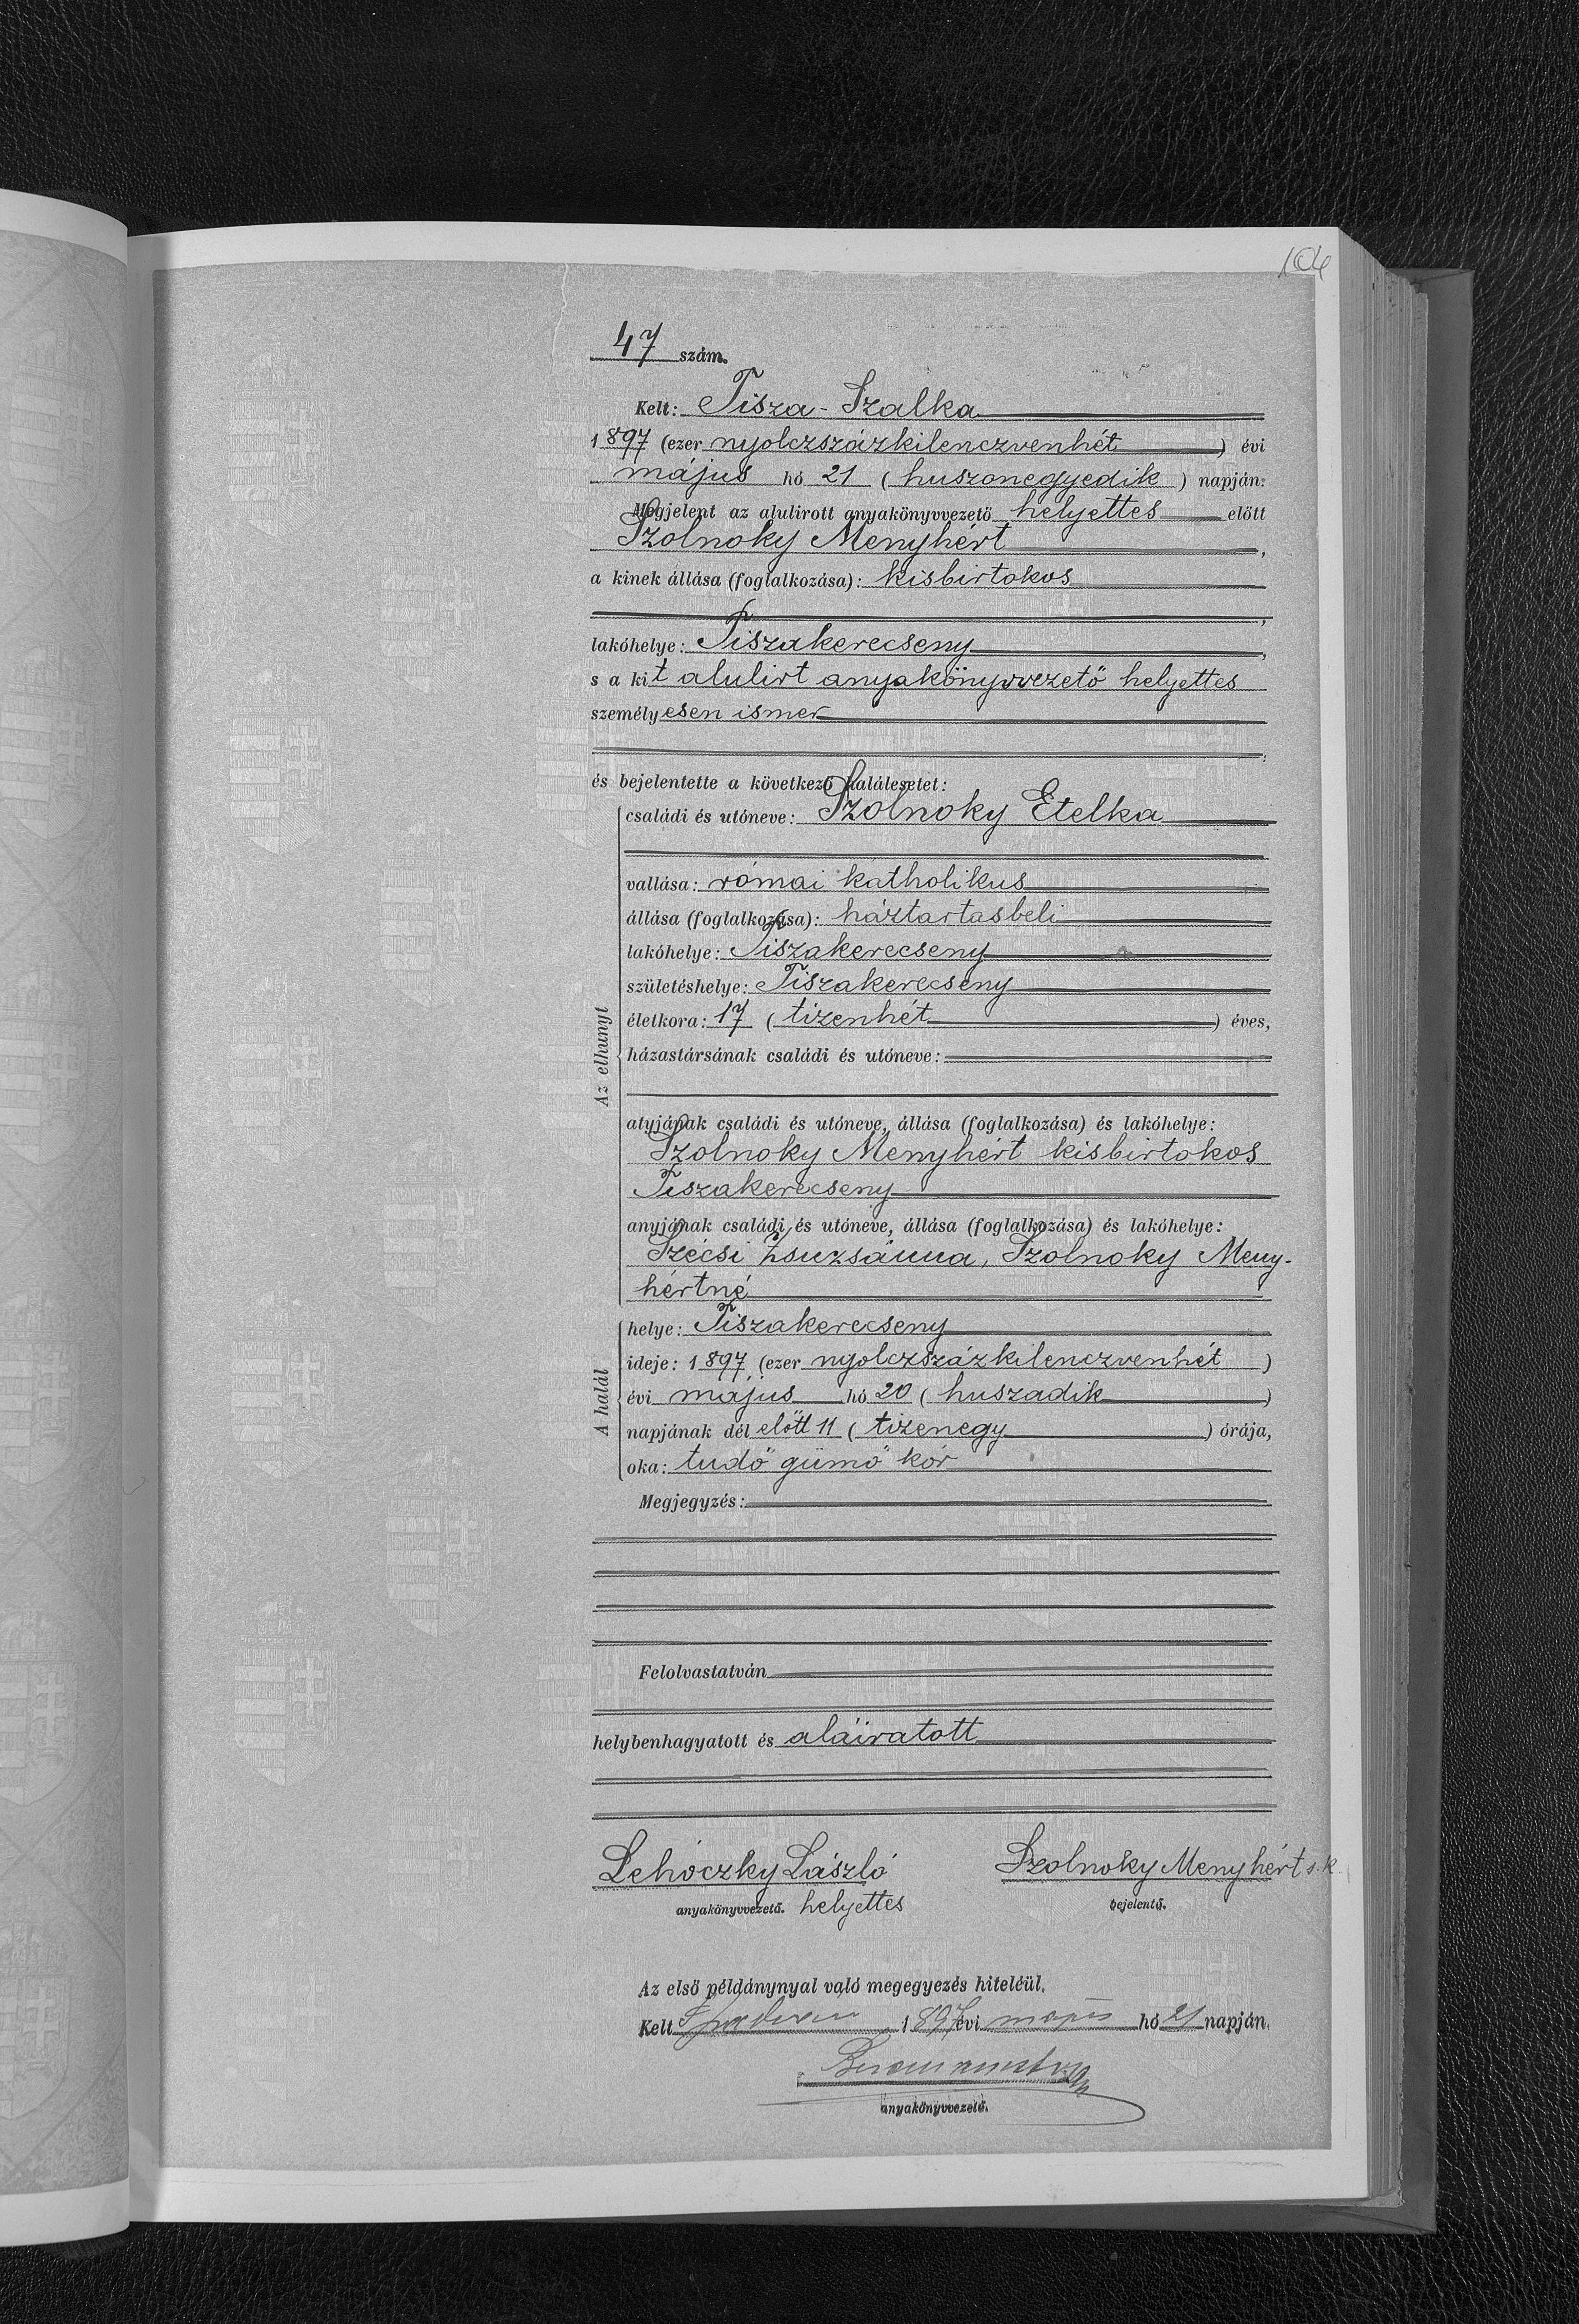 104
47 szám.
Kelt: Tisza-Szalka
1897 (ezer nyolczszázkilenczvenhét) évi
május hó 21 (huszonegyedik) napján.
Megjelent az alulirott anyakönyvvezető helyettes előtt
Szolnoky Menyhért,
a kinek állása (foglalkozása): kisbirtokos
,
lakóhelye: Tiszakerecseny,
s a kit alulirt anyakönyvvezető helyettes
személyesen ismer
,
és bejelentette a következő halálesetet:
Az elhunyt
családi és utóneve: Szolnoky Etelka
vallása: római katholikus
állása (foglalkozása): háztartasbeli
lakóhelye: Tiszakerecseny
születéshelye: Tiszakerecseny
életkora: 17 (tizenhét) éves,
házastársának családi és utóneve:
atyjának családi és utóneve, állása (foglalkozása) és lakóhelye:
Szolnoky Menyhért kisbirtokos
Tiszakerecseny
anyjának családi és utóneve, állása (foglalkozása) és lakóhelye:
Szécsi Zsuzsánna, Szolnoky Meny-
hértné
A halál
helye: Tiszakerecseny
ideje: 1897 (ezer nyolczszázkilenczvenhét)
évi május hó 20 (huszadik)
napjának dél előtt 11 (tizenegy) órája,
oka: tudő gümő kór
Megjegyzés:
Felolvastatván
helybenhagyatott és aláiratott
Lehóczky László Szolnoky Menyhért s.k.
anyakönyvvezető. helyettes bejelentő.
Az első példánynyal való megegyezés hiteléül.
Kelt 1897 évi május hó 21 napján.
anyakönyvvezető.